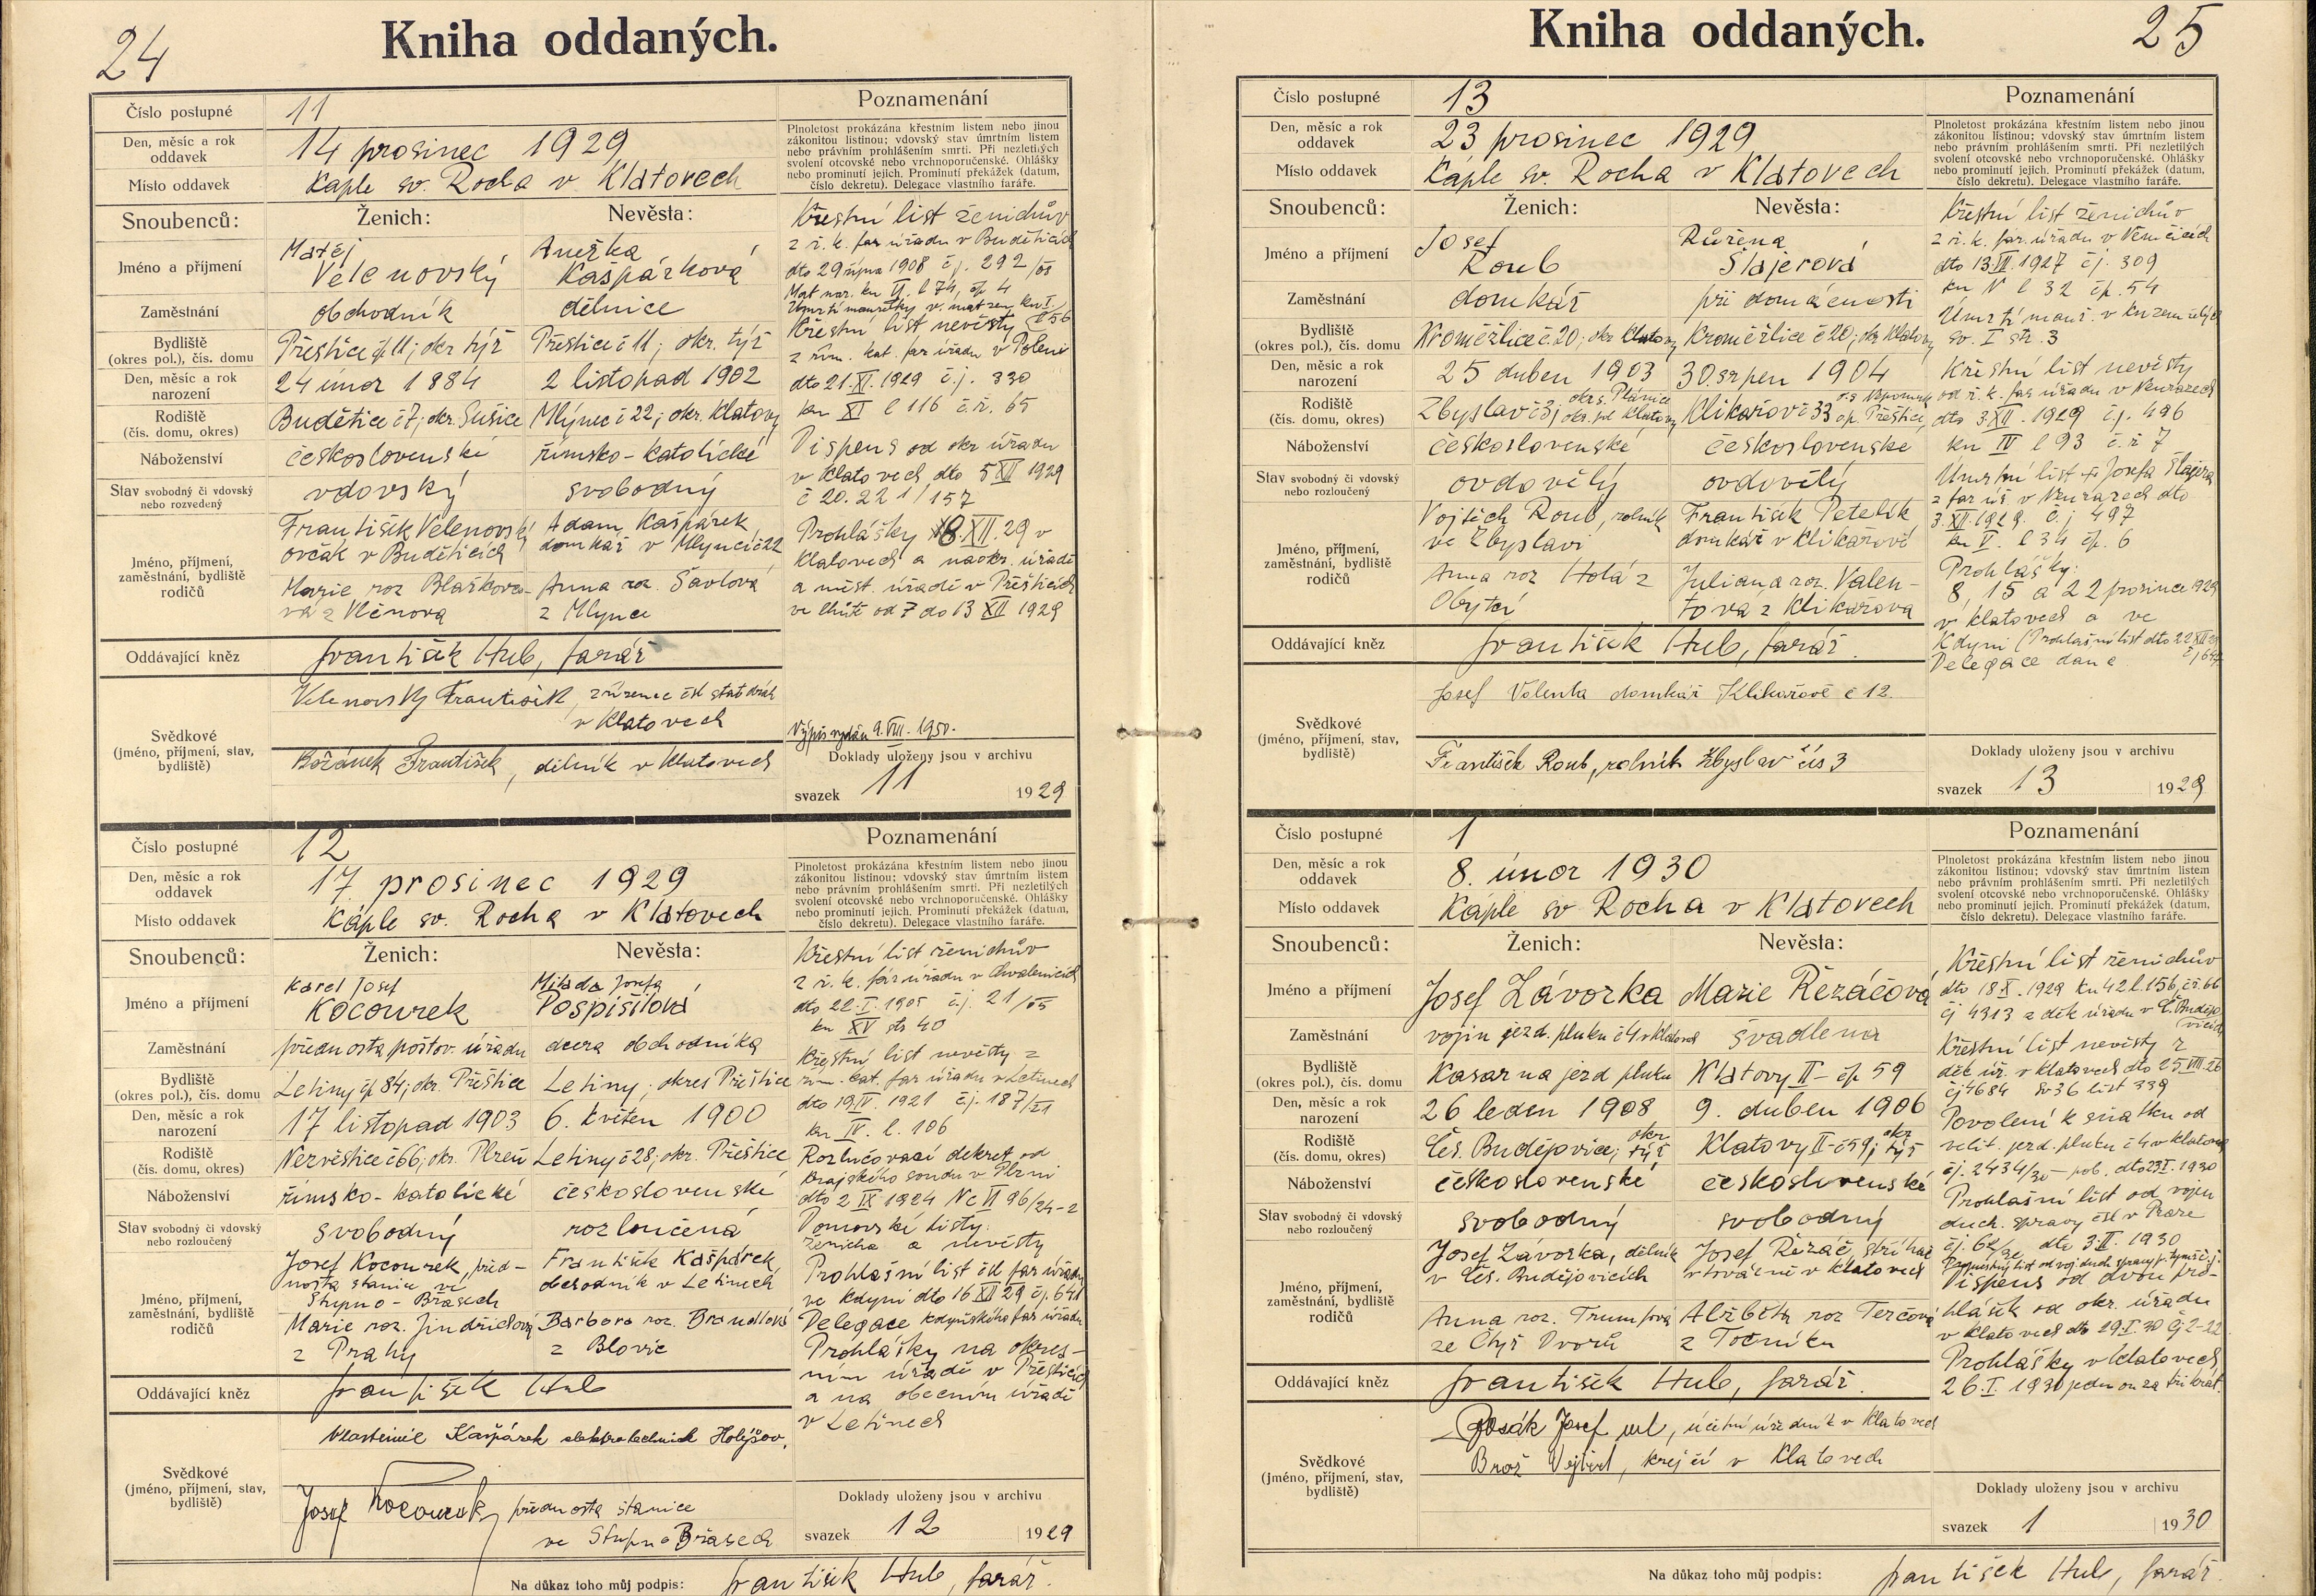 24
Kniha oddaných.
Číslo postupné 11
Poznamenání
Den, měsíc a rok oddavek 14 prosinec 1929
Plnoletost prokázána křestním listem nebo jinou
zákonitou listinou; vdovský stav úmrtním listem
nebo právním prohlášením smrti. Při nezletilých
svolení otcovské nebo vrchnoporučenské. Ohlášky
nebo prominutí jejich. Prominutí překážek (datum,
číslo dekretu). Delegace vlastního faráře.
Místo oddavek Kaple sv. Rocha v Klatovech
Snoubenců: Ženich: Nevěsta:
Jméno a příjmení Matěj Velenovský Anežka Kašpárková
Zaměstnání obchodník dělnice
Bydliště (okres pol.), čís. domu Přeštice čp 11; okr týž Přeštice č 11; okr. týž
Den, měsíc a rok narození 24 únor 1884 2 listopad 1902
Rodiště (čís. domu, okres) Budětice č 7; okr. Sušice Mlýnec č 22; okr. Klatovy
Náboženství československé římsko-katolické
Stav svobodný či vdovský nebo rozvedený vdovský svobodný
Jméno, příjmení, zaměstnání, bydliště rodičů
František Velenovský
ovčák v Buděticích
Marie roz
Adam Kašpárek,
domkář v Mlynci č 22
Anna roz. Šavlová
z Mlynce
Křestní list ženichův
z ř. k. far úřadu v Buděticích
dto 29 října 1908 č j. 292/08
Křestní list nevěsty
z řím. kat. far úřadu v Poleni
dto 21. XI. 1929 č. j. 330
kn XI l 116 č. ř. 65
Dispens od okr úřadu
v Klatovech dto 5 XII 1929
č 20.221/157
Prohlášky 8. XII. 29 v
Klatovech a na okr. úřadě
a měst. úřadě v Přešticích
ve lhůtě od 7 do 13 XII 1929
Oddávající kněz František Hub, farář
Svědkové (jméno, příjmení, stav, bydliště)
Velenovský František, zřízenec čsl stat drah
v Klatovech
František, dělník v Klatovech
Výpis vydán 9. VIII. 1950.
Doklady uloženy jsou v archivu
svazek 11 1929
Číslo postupné 12
Poznamenání
Den, měsíc a rok oddavek 17 prosinec 1929
Plnoletost prokázána křestním listem nebo jinou
zákonitou listinou; vdovský stav úmrtním listem
nebo právním prohlášením smrti. Při nezletilých
svolení otcovské nebo vrchnoporučenské. Ohlášky
nebo prominutí jejich. Prominutí překážek (datum,
číslo dekretu). Delegace vlastního faráře.
Místo oddavek Kaple sv. Rocha v Klatovech
Snoubenců: Ženich: Nevěsta:
Jméno a příjmení Karel Josef Kocourek Milada Josefa Pospíšilová
Zaměstnání přednosta poštov. úřadu dcera obchodníka
Bydliště (okres pol.), čís. domu Letiny čp 84; okr. Přeštice Letiny; okres Přeštice
Den, měsíc a rok narození 17 listopad 1903 6. květen 1900
Rodiště (čís. domu, okres) Nezvěstice č 66; okr. Plzeň Letiny č 28; okr. Přeštice
Náboženství římsko-katolické československé
Stav svobodný či vdovský nebo rozloučený svobodný rozloučená
Jméno, příjmení, zaměstnání, bydliště rodičů
Josef Kocourek, před-
nosta stanice ve
Stupno-Břasech
Marie roz. Jindřichová
z Prahy
František Kašpárek,
obchodník v Letinech
Barbora roz. Brandlová
z Blovic
Křestní list ženichův
z ř. k. far úřadu v Chvalenicích
dto 22. I. 1905 č. j. 21/05
kn XV str 40
Křestní list nevěsty z
řím. kat. far úřadu v Letinech
dto 19 IV. 1921 č. j. 187/21
kn IV. l. 106
Rozlučovací dekret od
krajského soudu v Plzni
dto 2 IX 1924 Nc VI 96/24-2
Domovské listy
ženicha a nevěsty
Prohlašní list čsl far úřadu
ve Kdyni dto 16 XII 29 čj. 641
Delegace kdyňského far úřadu
Prohlášky na okres-
ním úřadě v Přešticích
a na obecním úřadě
v Letinech
Oddávající kněz František Hub
Svědkové (jméno, příjmení, stav, bydliště)
Vlastimil Kašpárek elektrotechnik Holýšov.
Josef Kocourek, přednosta stanice
ve Stupno Břasech
Doklady uloženy jsou v archivu
svazek 12 1929
Na důkaz toho můj podpis: František Hub, farář.
Kniha oddaných.
25
Číslo postupné 13
Poznamenání
Den, měsíc a rok oddavek 23 prosinec 1929
Plnoletost prokázána křestním listem nebo jinou
zákonitou listinou; vdovský stav úmrtním listem
nebo právním prohlášením smrti. Při nezletilých
svolení otcovské nebo vrchnoporučenské. Ohlášky
nebo prominutí jejich. Prominutí překážek (datum,
číslo dekretu). Delegace vlastního faráře.
Místo oddavek Kaple sv. Rocha v Klatovech
Snoubenců: Ženich: Nevěsta:
Jméno a příjmení Josef Roub Růžena Šlajerová
Zaměstnání domkář při domácnosti
Bydliště (okres pol.), čís. domu Kroměžlice č. 20; okr Klatovy Kroměžlice č 20; okr Klatovy
Den, měsíc a rok narození 25 duben 1903 30. srpen 1904
Rodiště (čís. domu, okres) Zbyslav č 3; okr s. Plánice okr. pol Klatovy Klikařov č 33 o. s Nepomuk op. Přeštice
Náboženství československé československé
Stav svobodný či vdovský nebo rozloučený ovdovělý ovdovělý
Jméno, příjmení, zaměstnání, bydliště rodičů
Vojtěch Roub, rolník
ve Zbyslavi
Anna roz Holá z
Obytcí
František Petelík
domkář v Klikařově
Juliana roz. Valen-
tova z Klikařova
Křestní list ženichův
z ř. k. far. úřadu v Němčicích
dto 13 VII. 1927 čj. 309
kn N l 32 čp. 54
sv. I str. 3
Křestní list nevěsty
od ř. k. far úřadu v Neurazech
dto 3. XII. 1929 čj. 496
kn IV l 93 č. ř 7
Úmrtní list + Josefa Šlajera
z far úř v Neurazech dto
3. XII. 1929. č. j 497
kn V. l 34 čp. 6
Prohlášky:
8, 15 a 22 prosince 1929
v Klatovech a ve
Kdyni (Prohlašní list dto 22 XII 29
Delegace dana
Oddávající kněz František Hub, farář.
Svědkové (jméno, příjmení, stav, bydliště)
Josef Valenta domkář Klikařově č 12.
František Roub, rolník Zbyslav čís 3
Doklady uloženy jsou v archivu
svazek 13 1929
Číslo postupné 1
Poznamenání
Den, měsíc a rok oddavek 8. únor 1930
Plnoletost prokázána křestním listem nebo jinou
zákonitou listinou; vdovský stav úmrtním listem
nebo právním prohlášením smrti. Při nezletilých
svolení otcovské nebo vrchnoporučenské. Ohlášky
nebo prominutí jejich. Prominutí překážek (datum,
číslo dekretu). Delegace vlastního faráře.
Místo oddavek Kaple sv Rocha v Klatovech
Snoubenců: Ženich: Nevěsta:
Jméno a příjmení Josef Závorka Marie Řezáčová
Zaměstnání vojín jezd. pluku č 4 v Klatovech švadlena
Bydliště (okres pol.), čís. domu Kasarna jezd pluku Klatovy II - čp 59
Den, měsíc a rok narození 26 leden 1908 9. duben 1906
Rodiště (čís. domu, okres) Čes. Budějovice; okr týž Klatovy II - č 59; okr týž
Náboženství československé československé
Stav svobodný či vdovský nebo rozloučený svobodný svobodný
Jméno, příjmení, zaměstnání, bydliště rodičů
Josef Závorka, dělník
v Čes. Budějovicích
Anna roz. Trumfová
ze Čtyř Dvorů
Josef Řezáč, střihač
v továrně v Klatovech
Alžběta roz Terčová
z Točníku
Křestní list ženichův
dto 18 X. 1929 kn 42 l. 156, č ř. 66
čj 4313 z děk úřadu v Č. Budějo
vicích
Křestní list nevěsty z
děk úř. v Klatovech dto 25 VIII 26
čj 4684 sv 36 list 339
Povolení k sňatku od
velit. jezd. pluku č 4 v Klatovech
čj. 2434/30 - pob. dto 23 I. 1930
Prohlašní list od vojen
duch. správy čsl v Praze
dto 3. II. 1930
Dispens od dvou pro-
hlášek od okr. úřadu
v Klatovech dto 29 I. 30
Prohlášky v Klatovech
26. I. 1930 jednou za třikrát.
Oddávající kněz František Hub, farář.
Svědkové (jméno, příjmení, stav, bydliště)
Josef ml, účetní úředník v Klatovech
Brož Vojtěch, krejčí v Klatovech
Doklady uloženy jsou v archivu
svazek 1 1930
Na důkaz toho můj podpis: František Hub, farář